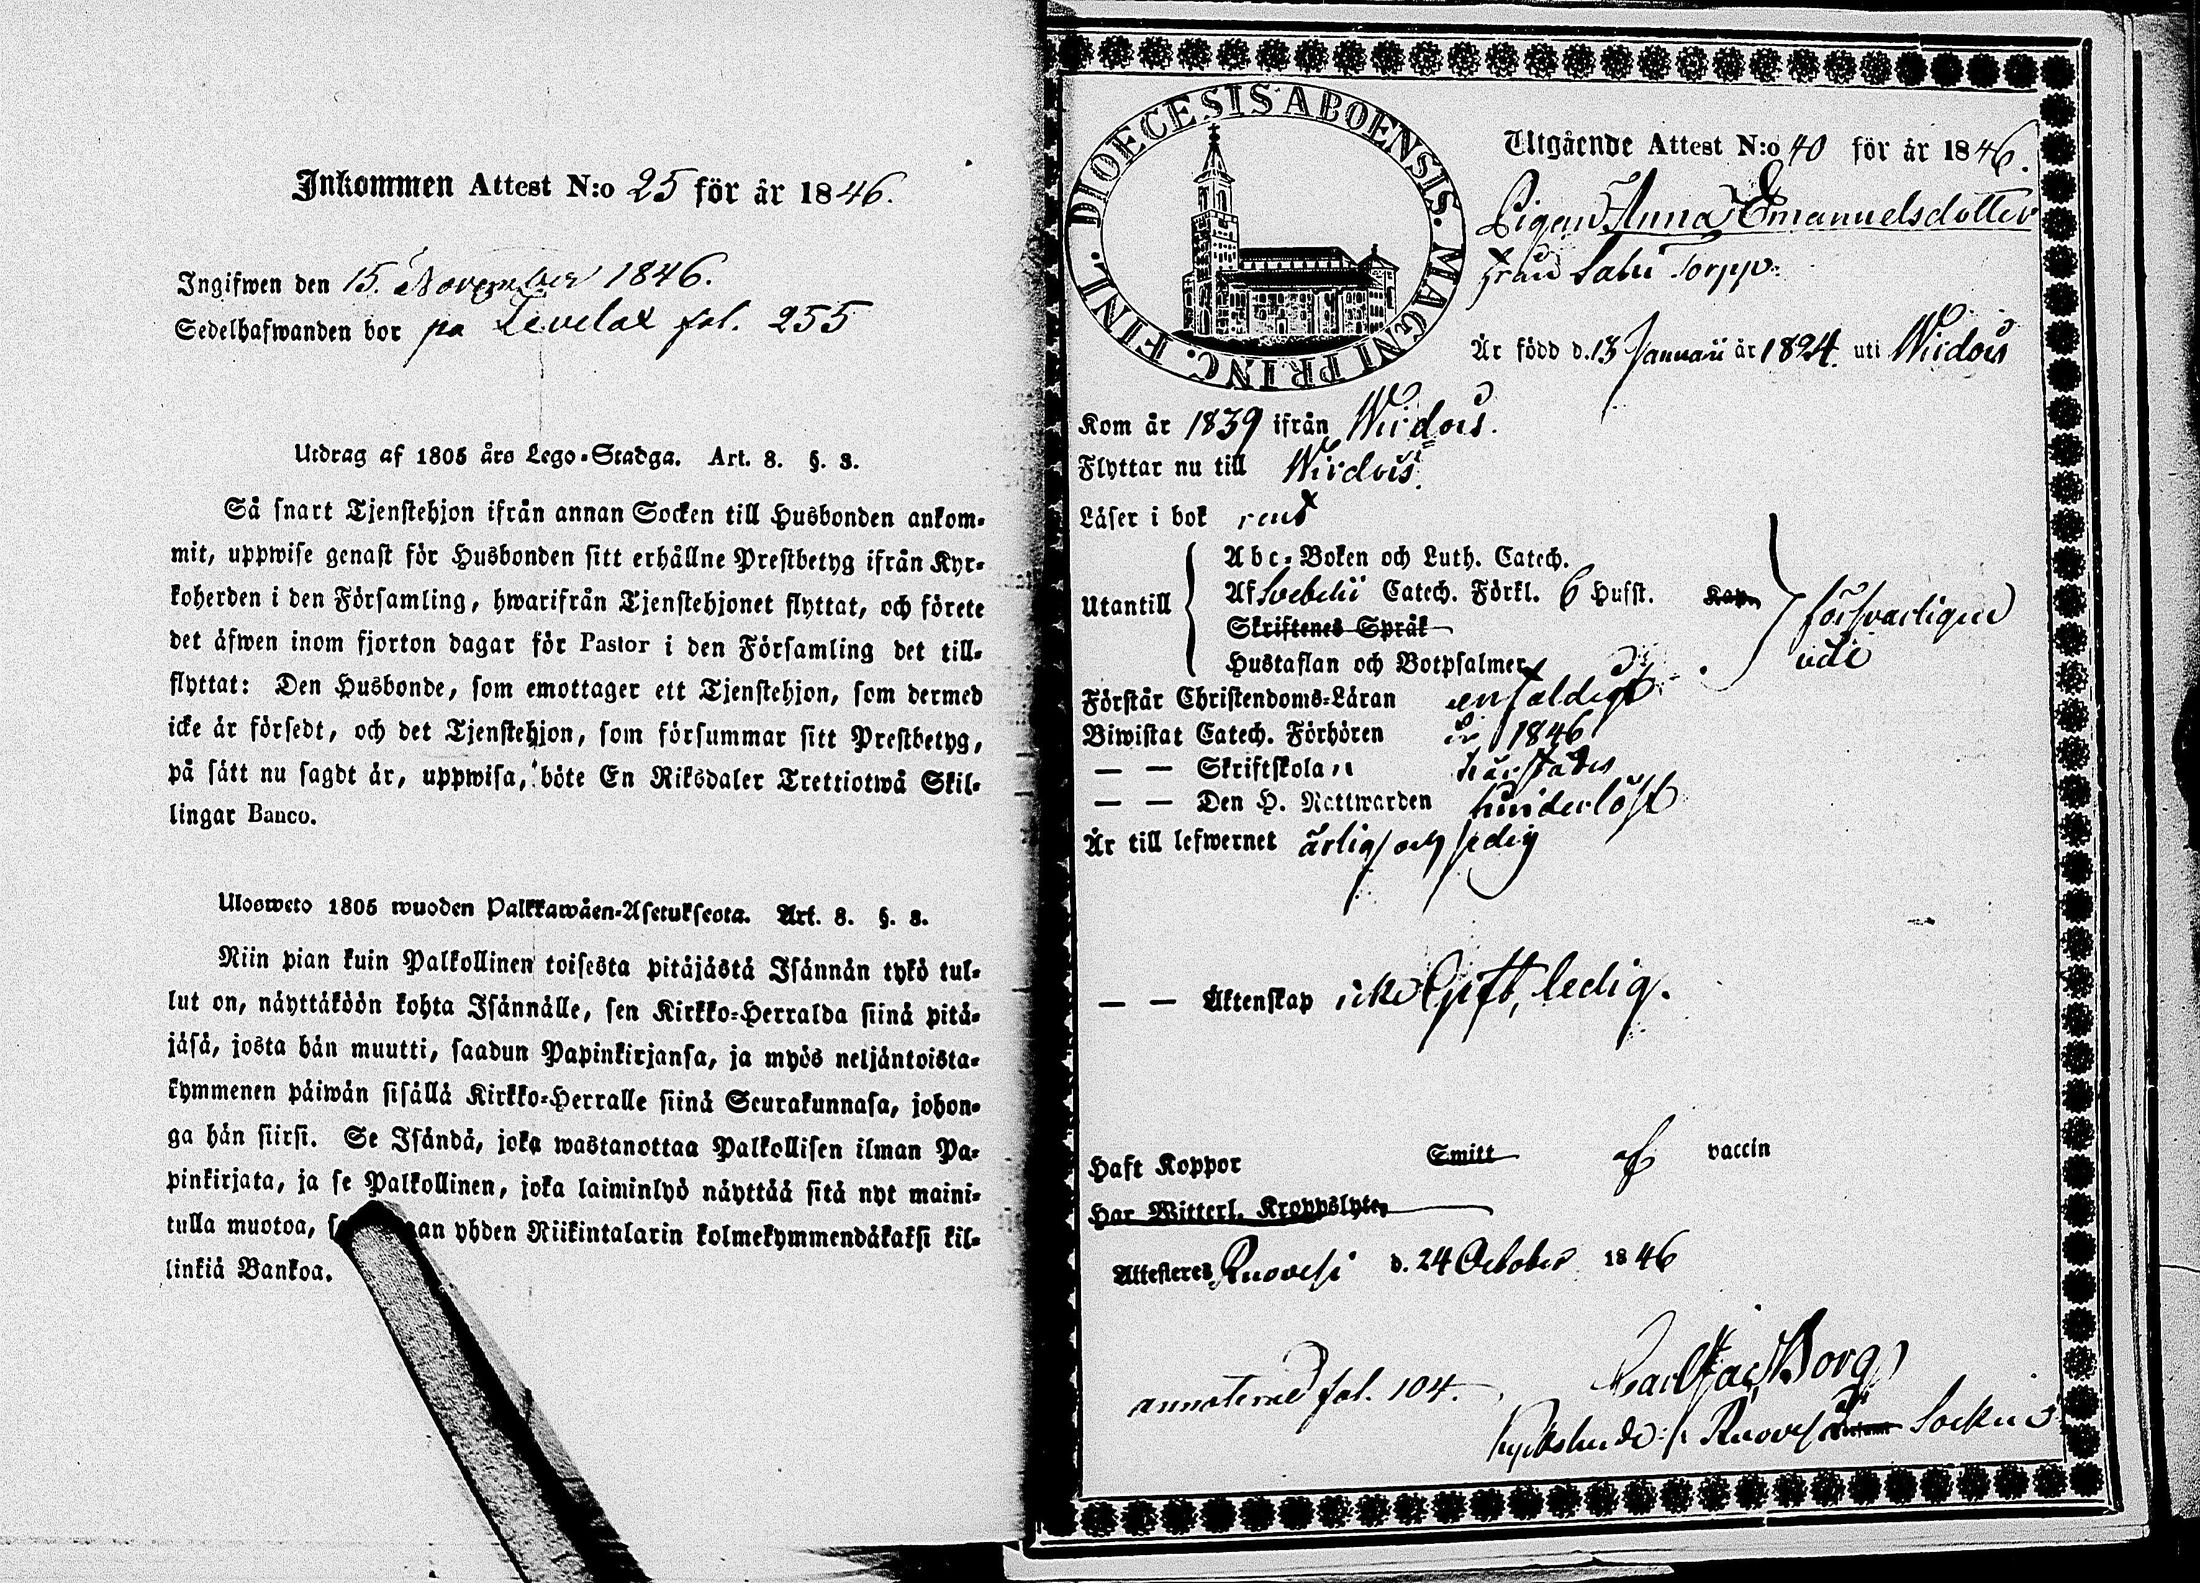 Inkommen Attest N:o 25 för år 1846.
Ingifwen den 15. November 1846.
Sedelhafwanden bor på Levelax fol. 255
Utdrag af 1805 års Lego-Stadga. Art. 8. §. 3.
Så snart Tjenstehjon ifrån annan Socken till Husbonden ankom-
mit, uppwise genast för Husbonden sitt erhållne Prestbetyg ifrån Kyr-
koherden i den Församling, hwarifrån Tjenstehjonet flyttat, och förete
det äfwen inom fjorton dagar för Pastor i den Församling det till-
flyttat: Den Husbonde, som emottager ett Tjenstehjon, som dermed
icke är försedt, och det Tjenstehjon, som försummar sitt Prestbetyg,
på sätt nu sagdt är, uppwisa, böte En Riksdaler Trettiotwå Skil-
lingar Banco.
Ulosweto 1805 wuoden Palkkawäen-Asetuksesta. Art. 8. §. 3.
Niin pian kuin Palkollinen toisesta pitäjästä Isännän tykö tul-
lut on, näyttäköön kohta Isännälle, sen Kirkko-Herralda siinä pitä-
jäsä, josta hän muutti, saadun Papinkirjansa, ja myös neljäntoista-
kymmenen päiwän sisällä Kirkko-Herralle siinä Seurakunnasa, johon-
ga hän siirsi. Se Isändä, joka wastanottaa Palkollisen ilman Pa-
pinkirjata, ja se Palkollinen, joka laiminlyö näyttää sitä nyt maini-
tulla muotoa, yhden Riikintalarin kolmekymmendäkaksi kil-
linkiä Bankoa.
DIOECESIS ABOENSIS. MAGNI PRINC. FINL.
Utgående Attest N:o 40 för år 1846.
Pigan Anna Emanuelsdotter
från Torpp.
Är född d. 13 Januarii år 1824. uti Wirdois
Kom år 1839 ifrån Wirdois.
Flyttar nu till Wirdois.
Läser i bok rent
Utantill
Abc-Boken och Luth. Catech.
Af Svebelii Catech. Förkl. 6 Hufst. Kap.
Skriftenes Språk
Hustaflan och Botpsalmer
försvarligen
Förstår Christendoms-Läran enfaldigt
Biwistat Catech. Förhören år 1846
— — Skriftskolan
— — Den H. Nattwarden hinderlöst
Är till lefwernet ärlig och sedig
— — Äktenskap icke Gift, ledig.
Haft Koppor Smitt af vaccin
Har Witterl. Kroppslyte,
Attesteres Ruovesi d. 24 October 1846
Carl Jac. Borg
annoterad fol. 104.
Kyrkoherde i Ruovesi Socken